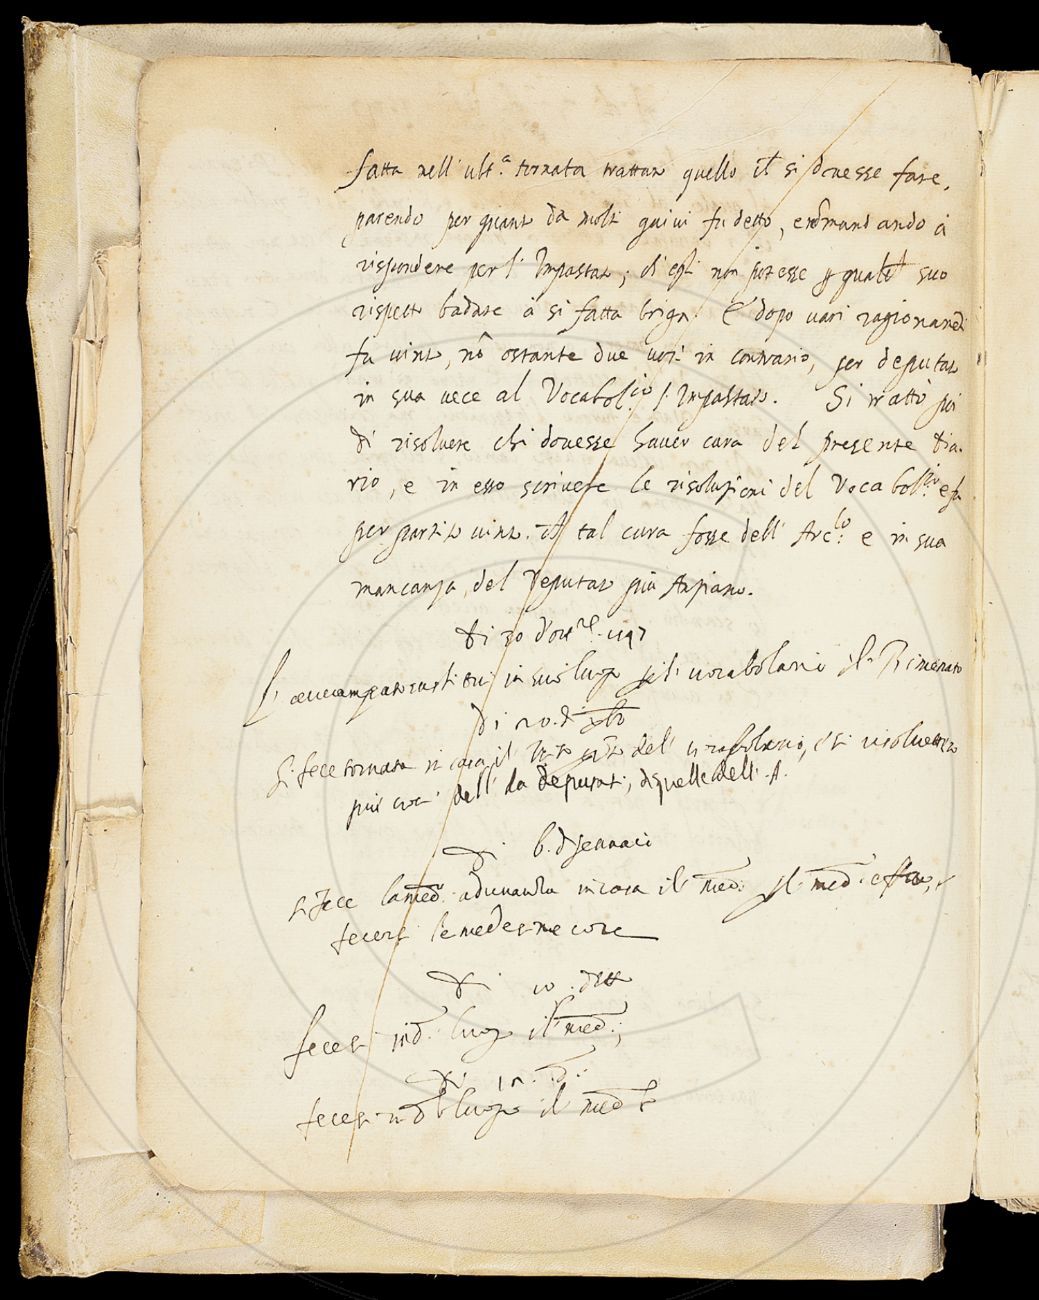 fatta nell' ult.a tornata trattar quello ch si douesse fare,
parendo per quanto da molti quiui fu detto, domandando à
rispondere per l' Impastato; ch' egli non potesse p qualch suo
rispetto badare à si fatta briga. E dopo uari ragionamti
fu uinto, nō ostante due uoti in contrario, per deputato
in sua uece al Vocabol.rio l' Impastato. Si trattò poi
di risoluere chi douesse hauer cura del presente Dia-
rio, e in esso scriuere le risoluzioni del Vocabol.rio e fu
per partito uinto. ch tal cura fosse dell' Arc.lo e in sua
mancanza, del Deputato più Anziano.
Di 30 d'ott.re
in suo luogo vocabolario il Rimenato
Di 20. di xbre
Si fece tornata in casa il del' vocabolario, e si risoluettero
più voci dell' da deputati, di quelle dell' A.
Di 6. di Jennaio
si fece la med. adunanza in casa il med. il med.
fecersi le medesime cose
Di 10. detto
fecesi in d. luogo il med.
Di
fecesi in d. luogo il med.